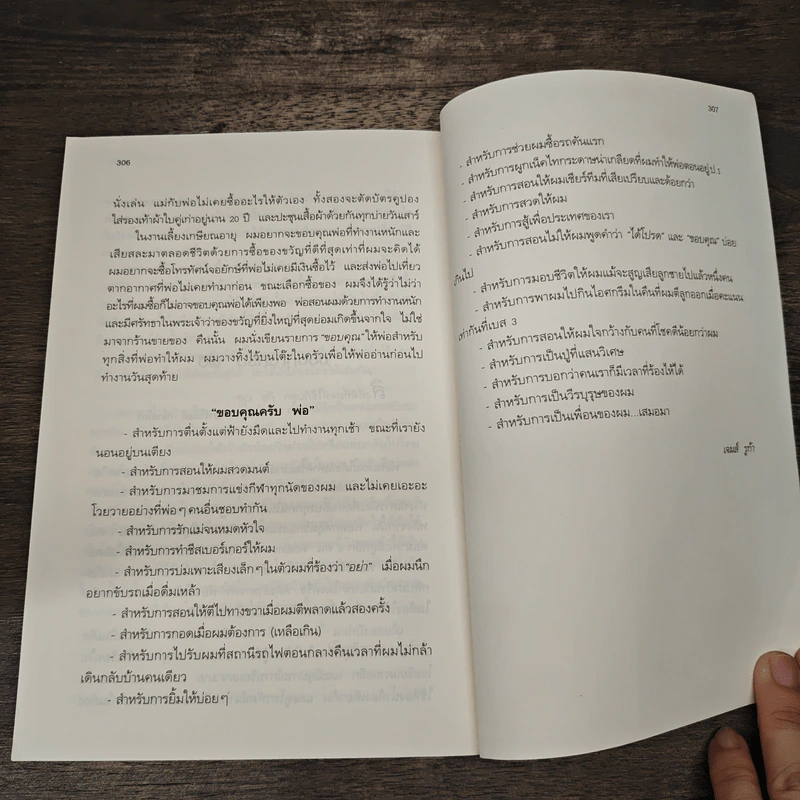 306
นั่งเล่น แม่กับพ่อไม่เคยซื้ออะไรให้ตัวเอง ทั้งสองจะตัดบัตรคูปอง
ใส่รองเท้าผ้าใบคู่เก่าอยู่นาน 20 ปี และปะชุนเสื้อผ้าด้วยกันทุกบ่ายวันเสาร์
ในงานเลี้ยงเกษียณอายุ ผมอยากจะขอบคุณพ่อที่ทำงานหนักและ
เสียสละมาตลอดชีวิตด้วยการซื้อของขวัญที่ดีที่สุดเท่าที่ผมจะคิดได้
ผมอยากจะซื้อโทรทัศน์จอยักษ์ที่พ่อไม่เคยมีเงินซื้อไว้ และส่งพ่อไปเที่ยว
ตากอากาศที่พ่อไม่เคยทำมาก่อน ขณะเลือกซื้อของ ผมจึงได้รู้ว่าไม่ว่า
อะไรที่ผมซื้อก็ไม่อาจขอบคุณพ่อได้เพียงพอ พ่อสอนผมด้วยการทำงานหนัก
และมีศรัทธาในพระเจ้าว่าของขวัญที่ยิ่งใหญ่ที่สุดย่อมเกิดขึ้นจากใจ ไม่ใช่
มาจากร้านขายของ คืนนั้น ผมนั่งเขียนรายการ "ขอบคุณ" ให้พ่อสำหรับ
ทุกสิ่งที่พ่อทำให้ผม ผมวางทิ้งไว้บนโต๊ะในครัวเพื่อให้พ่ออ่านก่อนไป
ทำงานวันสุดท้าย
"ขอบคุณครับ พ่อ"
- สำหรับการตื่นตั้งแต่ฟ้ายังมืดและไปทำงานทุกเช้า ขณะที่เรายัง
นอนอยู่บนเตียง
- สำหรับการสอนให้ผมสวดมนต์
- สำหรับการมาชมการแข่งกีฬาทุกนัดของผม และไม่เคยเอะอะ
โวยวายอย่างที่พ่อๆ คนอื่นชอบทำกัน
- สำหรับการรักแม่จนหมดหัวใจ
- สำหรับการทำชีสเบอร์เกอร์ให้ผม
- สำหรับการบ่มเพาะเสียงเล็กๆ ในตัวผมที่ร้องว่า "อย่า" เมื่อผมนึก
อยากขับรถเมื่อดื่มเหล้า
- สำหรับการสอนให้ตีไปทางขวาเมื่อผมตีพลาดแล้วสองครั้ง
- สำหรับการกอดเมื่อผมต้องการ (เหลือเกิน)
- สำหรับการไปรับผมที่สถานีรถไฟตอนกลางคืนเวลาที่ผมไม่กล้า
เดินกลับบ้านคนเดียว
- สำหรับการยิ้มให้บ่อยๆ
307
- สำหรับการช่วยผมซื้อรถคันแรก
- สำหรับการผูกเน็คไทกระดาษน่าเกลียดที่ผมทำให้พ่อตอนอยู่ป.1
- สำหรับการสอนให้ผมเชียร์ทีมที่เสียเปรียบและด้อยกว่า
- สำหรับการสวดให้ผม
- สำหรับการสู้เพื่อประเทศของเรา
- สำหรับการสอนไม่ให้ผมพูดคำว่า "ได้โปรด" และ "ขอบคุณ" บ่อย
เกินไป
- สำหรับการมอบชีวิตให้ผมแม้จะสูญเสียลูกชายไปแล้วหนึ่งคน
- สำหรับการพาผมไปกินไอศกรีมในคืนที่ผมตีลูกออกเมื่อคะแนน
เท่ากันที่เบส 3
- สำหรับการสอนให้ผมใจกว้างกับคนที่โชคดีน้อยกว่าผม
- สำหรับการเป็นปู่ที่แสนวิเศษ
- สำหรับการบอกว่าคนเราก็มีเวลาที่ร้องไห้ได้
- สำหรับการเป็นวีรบุรุษของผม
- สำหรับการเป็นเพื่อนของผม...เสมอมา
เจมส์ รูก้า